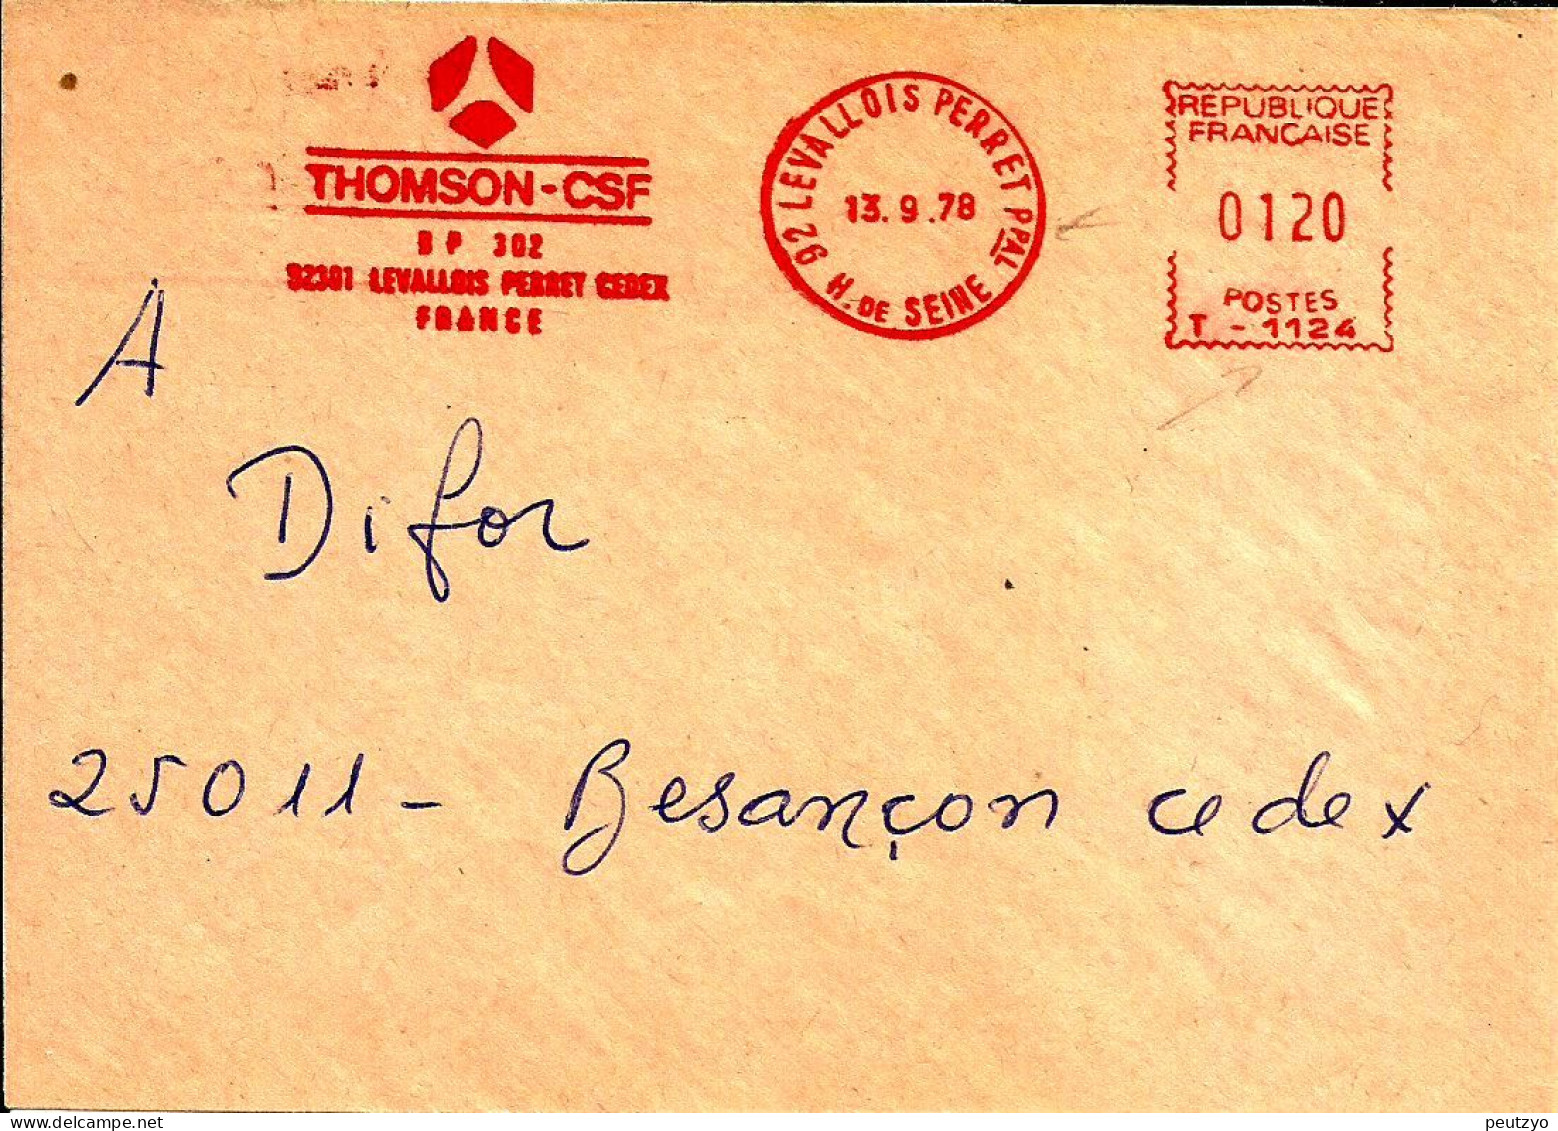 THOMSON-CSF
BP 302
92301 LEVALLOIS PERRET CEDEX
FRANCE
92 LEVALLOIS PERRET PPAL
13.9.78
H. DE SEINE
REPUBLIQUE
FRANCAISE
0120
POSTES
T - 1124
A
Difor
25011 - Besançon cedex
peutzyo